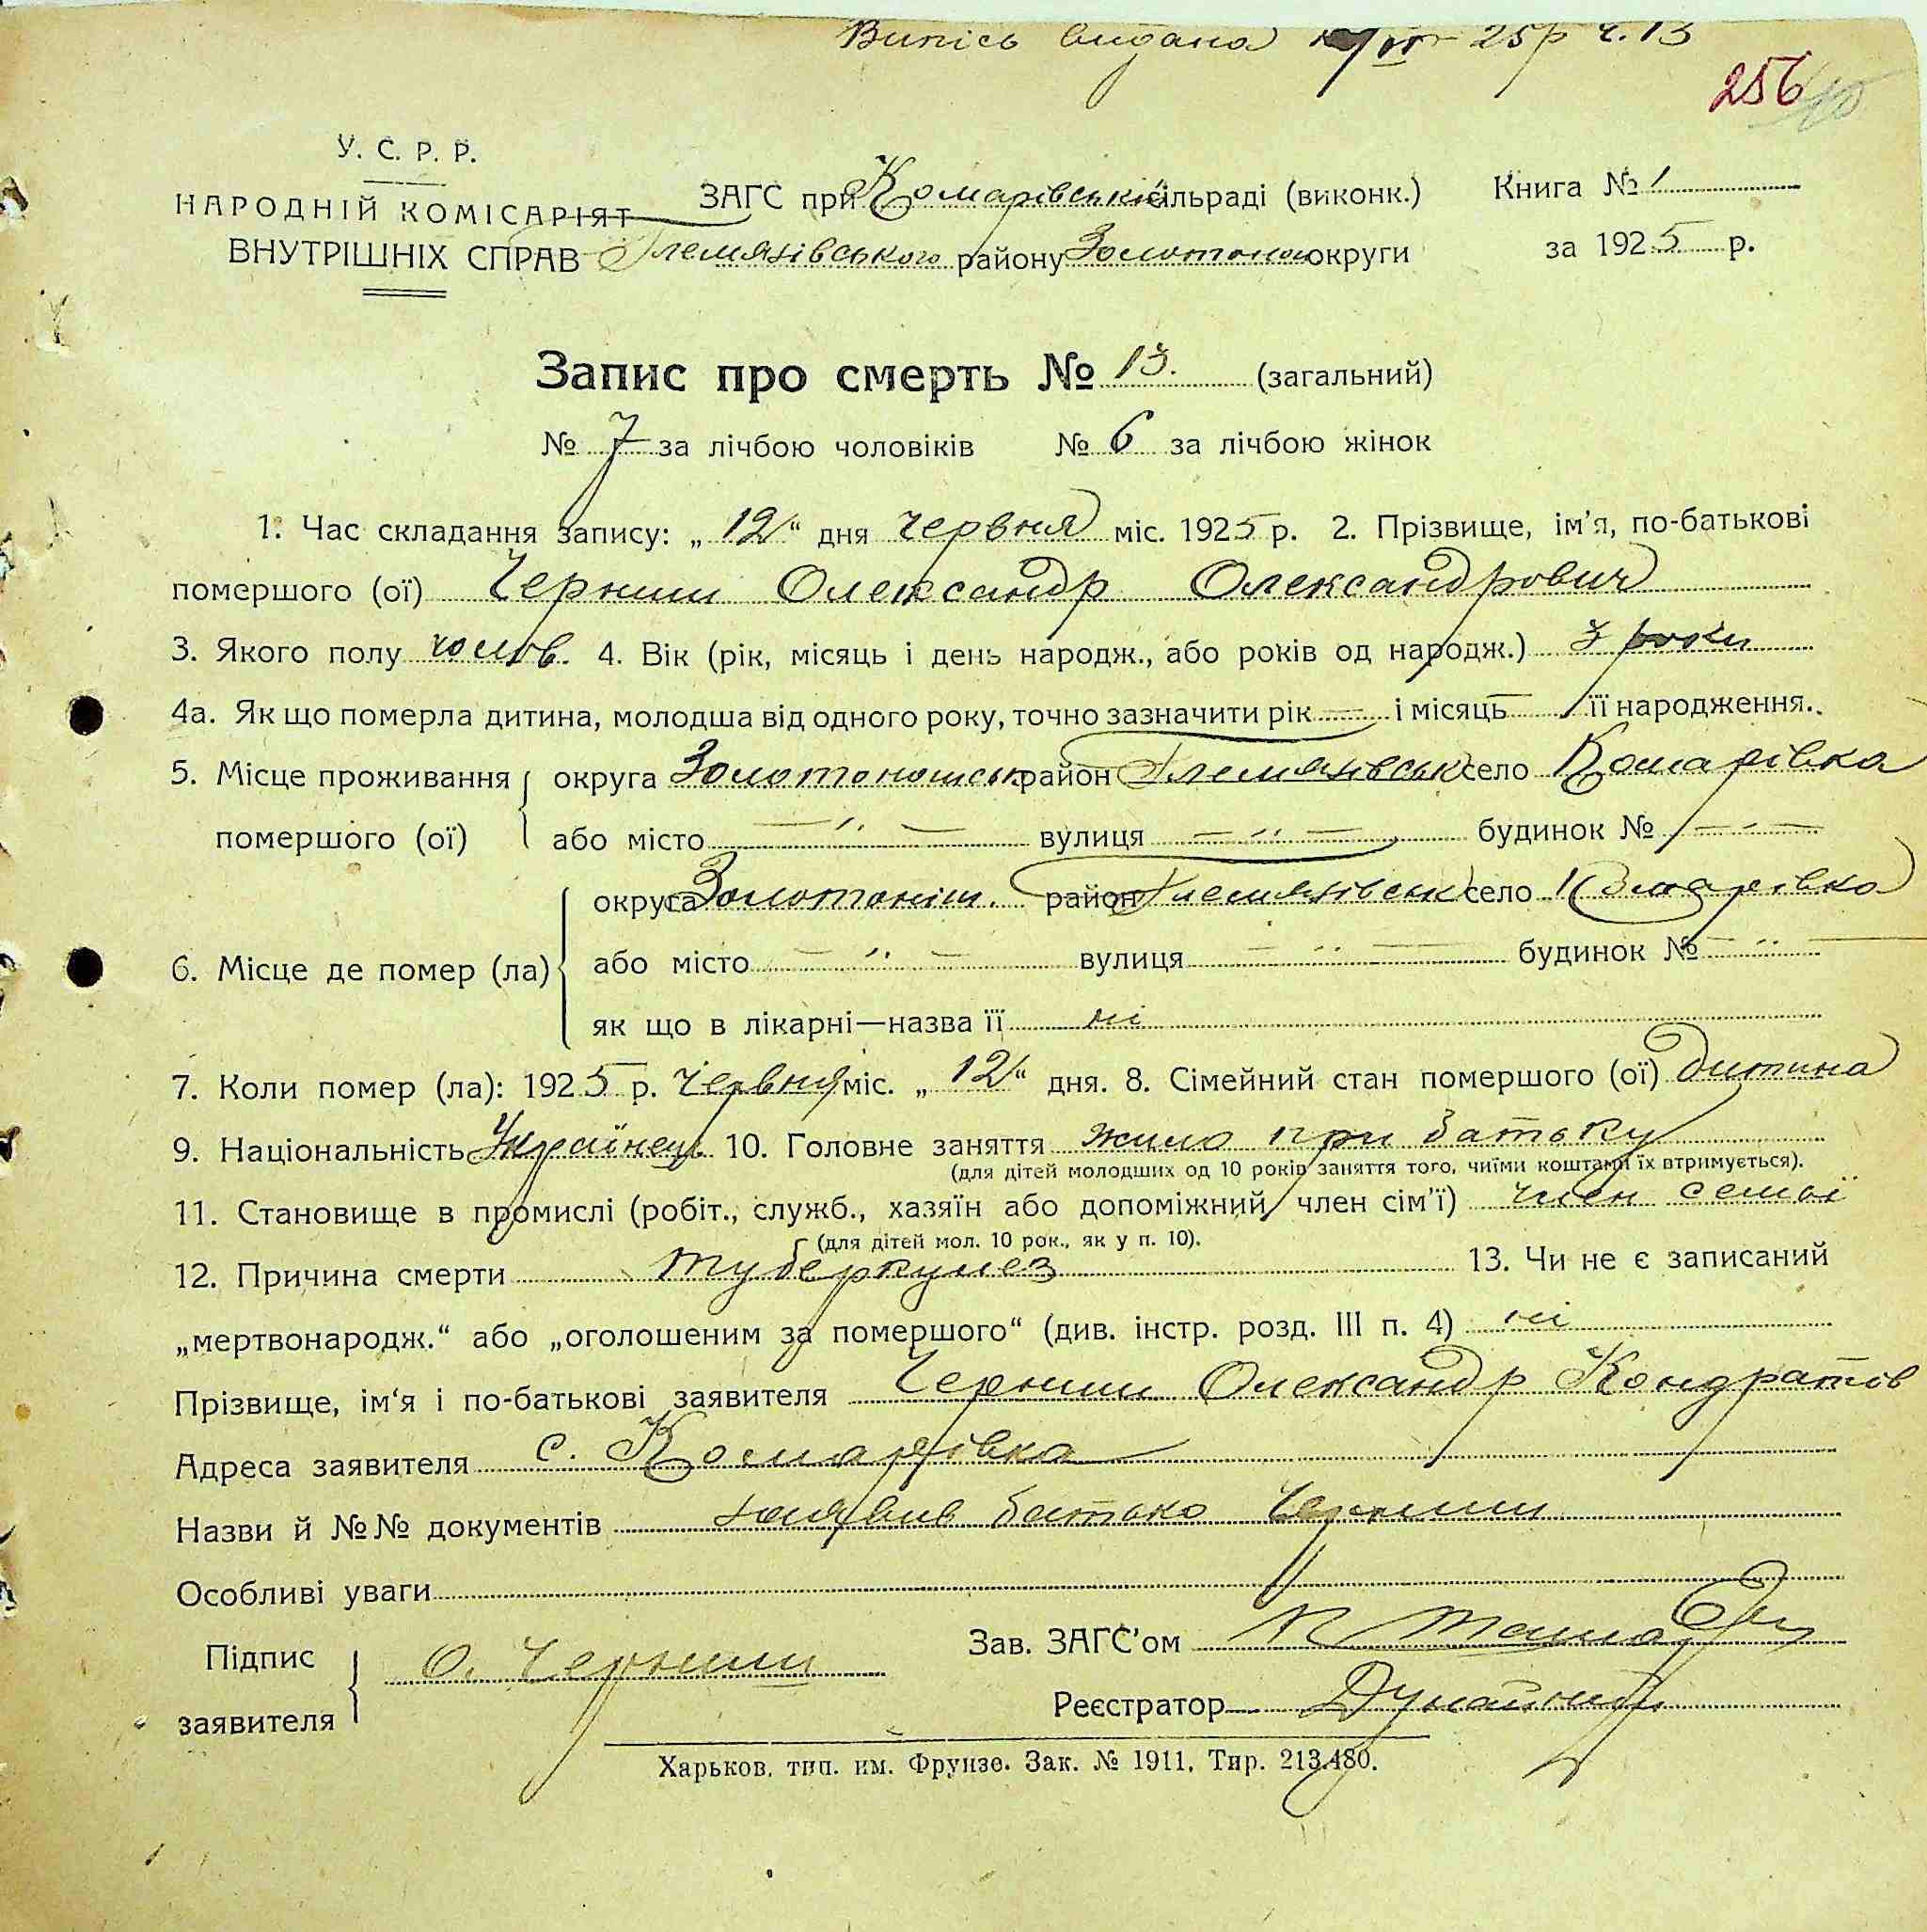 Випісь видана 25р ч. 13
256
У. С. Р. Р.
НАРОДНІЙ КОМІСАРІЯТ
ВНУТРІШНІХ СПРАВ
ЗАГС при Комарівській сільраді (виконк.)
Гельмязівського району Золотонош округи
Книга № 1
за 1925 р.
Запис про смерть № 13. (загальний)
№ 7 за лічбою чоловіків № 6 за лічбою жінок
1. Час складання запису: „12“ дня червня міс. 1925 р. 2. Прізвище, ім'я, по-батькові
помершого (ої) Черниш Олександр Олександрович
3. Якого полу чолов. 4. Вік (рік, місяць і день народж., або років од народж.) 3 роки
4а. Як що померла дитина, молодша від одного року, точно зазначити рік — і місяць — її народження.
5. Місце проживання помершого (ої)
округа Золотоношськ район село Комарівка
або місто — „ — вулиця — „ — будинок № — „ —
6. Місце де помер (ла)
округа Золотоніш. район село Комарівка
або місто — „ — вулиця — „ — будинок № — „ —
як що в лікарні—назва її ні
7. Коли помер (ла): 1925 р. Червня міс. „12“ дня. 8. Сімейний стан помершого (ої) дитина
9. Національність Українець 10. Головне заняття жило при батьку
(для дітей молодших од 10 років заняття того, чиїми коштами їх втримується).
11. Становище в промислі (робіт., служб., хазяїн або допоміжний член сім'ї) член семьї
(для дітей мол. 10 рок., як у п. 10).
12. Причина смерти туберкулез 13. Чи не є записаний
„мертвонародж.“ або „оголошеним за помершого“ (див. інстр. розд. III п. 4) ні
Прізвище, ім'я і по-батькові заявителя Черниш Олександр Кондратов
Адреса заявителя с. Комарівка
Назви й №№ документів заявив батько Черниш
Особливі уваги
Підпис заявителя О. Черниш
Зав. ЗАГС'ом
Реєстратор
Харьков, тип. им. Фрунзе. Зак. № 1911, Тир. 213.480.